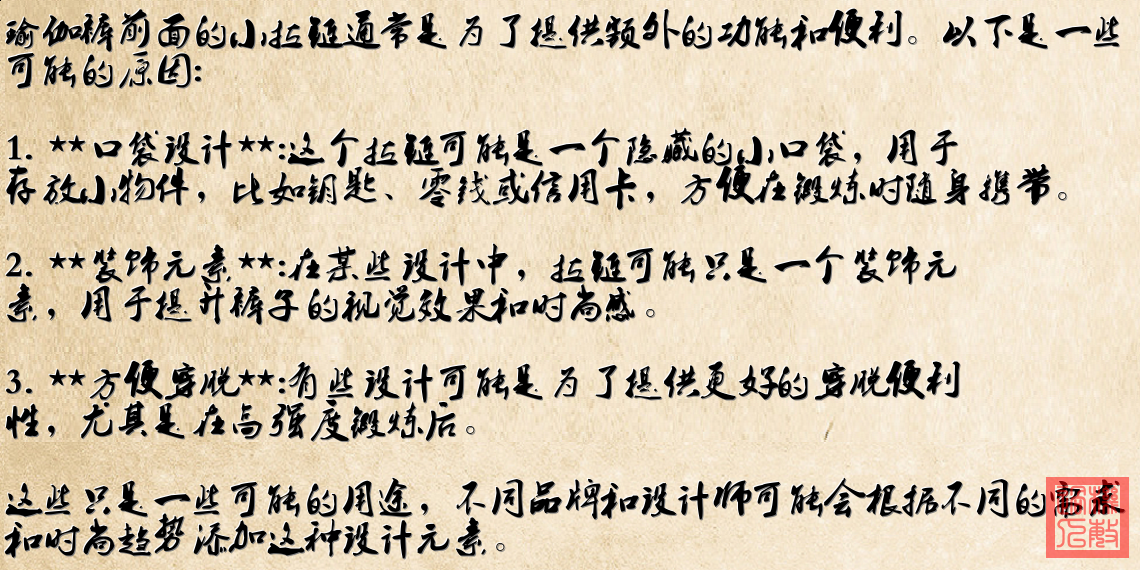 瑜伽裤前面的小拉链通常是为了提供额外的功能和便利。以下是一些
可能的原因:
1. **口袋设计**:这个拉链可能是一个隐藏的小口袋，用于
存放小物件，比如钥匙、零钱或信用卡，方便在锻炼时随身携带。
2. **装饰元素**:在某些设计中，拉链可能只是一个装饰元
素，用于提升裤子的视觉效果和时尚感。
3. **方便穿脱**:有些设计可能是为了提供更好的穿脱便利
性，尤其是在高强度锻炼后。
这些只是一些可能的用途，不同品牌和设计师可能会根据不同的需求
和时尚趋势添加这种设计元素。